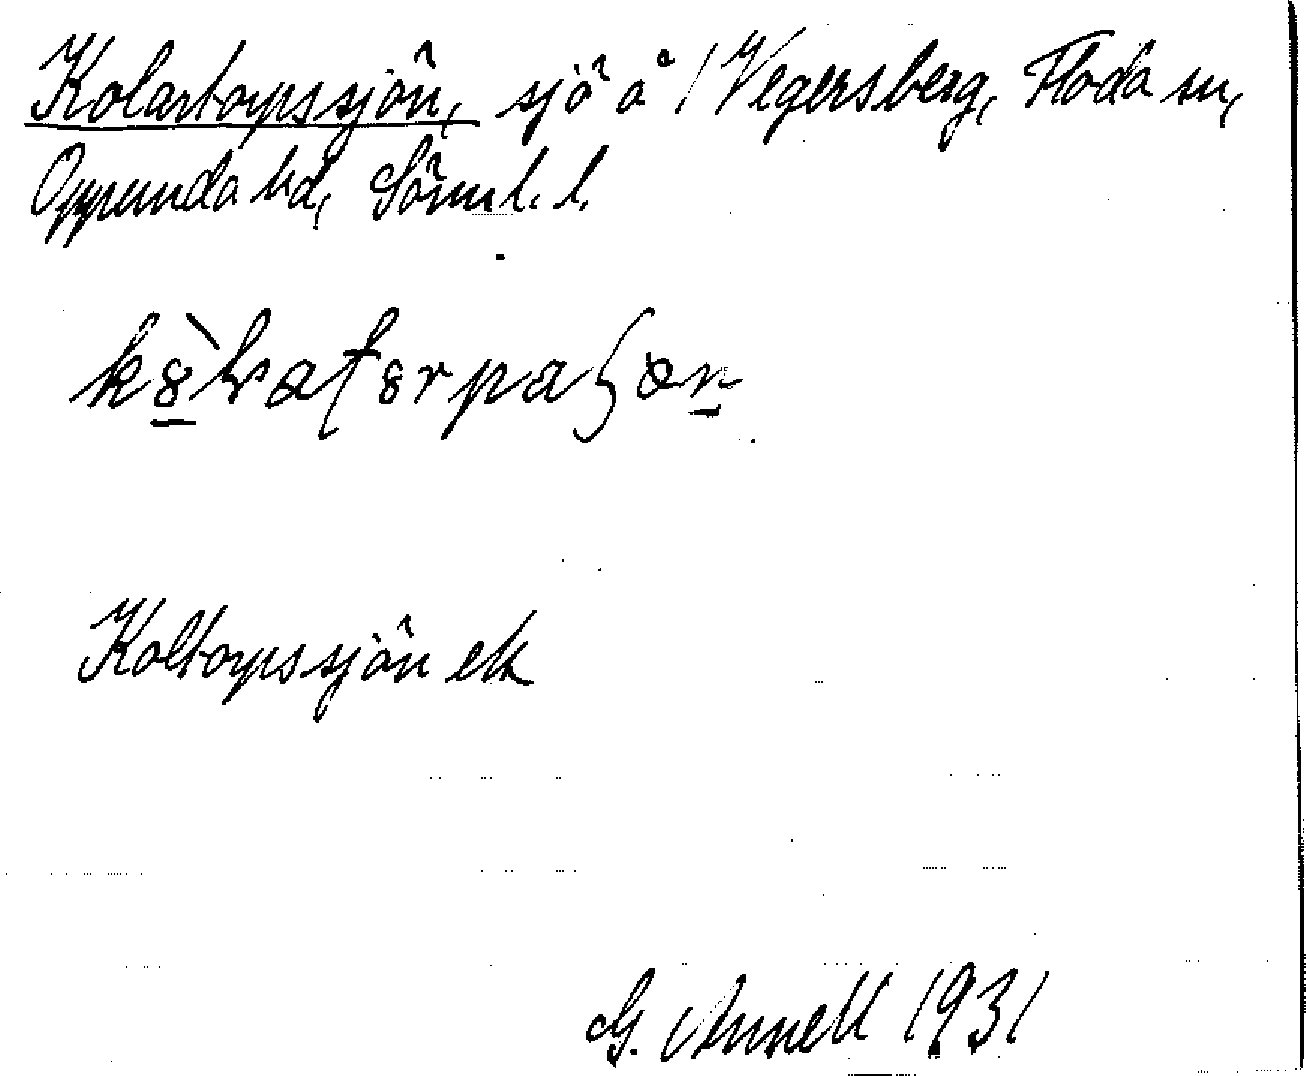 Kolartorpssjön, sjö å / Vegersberg, Floda sn,
Oppunda hd, Sörml. l.
Koltorpssjön ek
G. Annell 1931